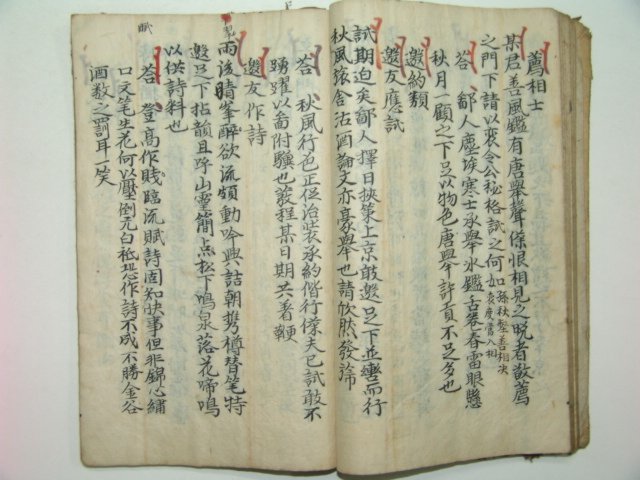 薦相士
某君善風鑑有唐舉聲傢恨相見之晚者敢薦
之門下請以裴令公秘格試之何如
孫秋壑善相決
裴度當入相
答 鄙人塵埃寒士承舉氷鑑舌卷春雷眼懸
秋月一顧之下足以物色唐興今詩貢不足多也
邀約類
邀友應試
試期迫矣鄙人擇日挾策上京敢邀足下並轡而行
秋風旅舍沽酒論文亦豪舉也請欣然發諦
答 秋風行色正促治裝承約偕行傢夫已試敢不
踴躍以面附驥也發程某日期共着鞭
邀友作詩
雨後晴峯醉欲流頻動吟興詰朝携樽替笔特
邀足下拈韻且呼山靈簡点松下鳴泉落花啼鳴
以供詩料也
答 登高作賤臨流賦詩固知快事但非錦心繡
口文笔生花何以壓倒元白祗恐作詩不成不勝金谷
酒数之罰耳一笑
賦